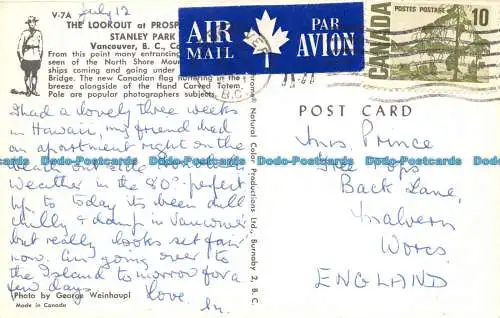 V-7A
July 12
THE LOOKOUT at PROSP
STANLEY PARK
Vancouver, B. C., Ca
From this point many entrancing
seen of the North Shore Mou
ships coming and going under
Bridge. The new Canadian flag fluttering in the
breeze alongside of the Hand Carved Totem
Pole are popular photographers subjects.
I had a lovely three weeks
in Hawaii, my friend had
an apartment right on the
beach
Weather in the 80°: perfect
Up to today its been dull
chilly & damp in Vancouver
but really looks set fair
now. Am going over to
the Island tomorrow for a
few days. Love.
Photo by George Weinhaupl
Made in Canada
AIR
MAIL
PAR
AVION
CANADA
POSTES POSTAGE
10
Natural Color Productions Ltd., Burnaby 2, B. C.
POST CARD
Mrs. Prince
Tree Tops
Back Lane,
Malvern
Worcs
ENGLAND
Dodo-Postcards Dodo-Postcards Dodo-Postcards Dodo-Postcards